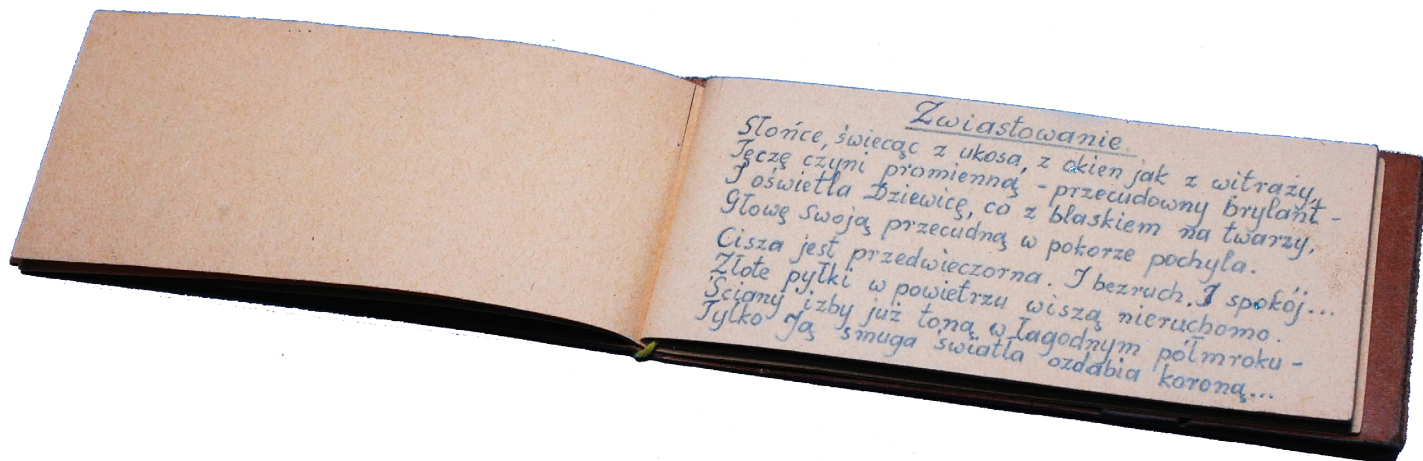 Zwiastowanie.
Słońce, świecąc z ukosa, z okien jak z witraży,
Tęczę czyni promienną - przecudowny brylant -
I oświetla Dziewicę, co z blaskiem na twarzy,
Głowę swoją przecudną w pokorze pochyla.
Cisza jest przedwieczorna. I bezruch. I spokój...
Złote pyłki w powietrzu wiszą nieruchomo.
Ściany izby już toną w łagodnym półmroku -
Tylko Ją smuga światła ozdabia koroną...